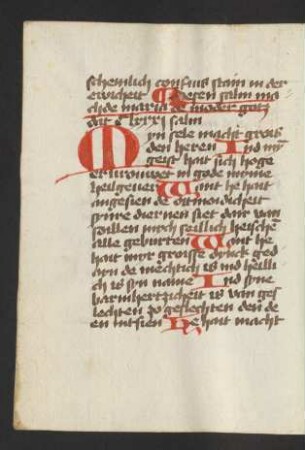 schemlich confuus stain in der
ewicheit Deesen salm ma
chde maria de moder gotz
dit C lxxxi salm
Myn sele macht grois
den heren Ind myn
geist hait sich hoge
erurouwet in gode myme
heilgeuer Want he hait
angesien de oitmoidicheit
synre diernen siet dair van
soillen mych seillich heischen
alle geburten Want he
hait myr groisse dynck ged
dyn de mechtich is ind heilli
ch is syn name Ind syne
barmhertzicheit is van ges
lechten zo geslechten den de
en intsien He hait macht